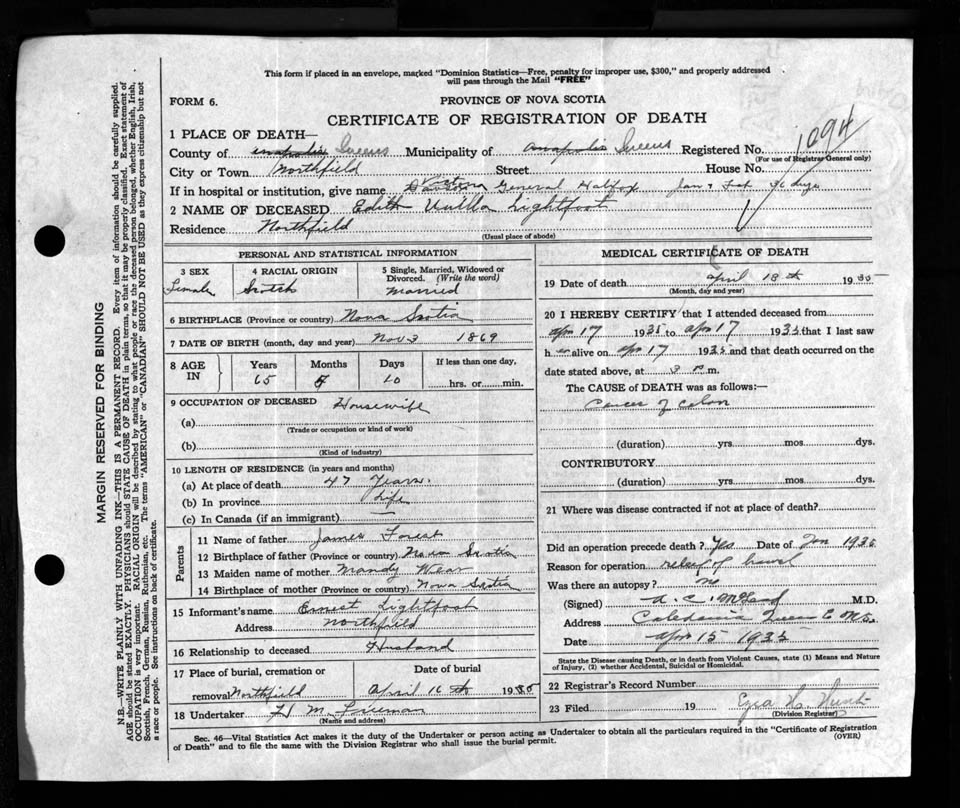 This form if placed in an envelope, marked "Dominion Statistics—Free, penalty for improper use, $300," and properly addressed
will pass through the Mail "FREE"
FORM 6.
PROVINCE OF NOVA SCOTIA
CERTIFICATE OF REGISTRATION OF DEATH
1094
1 PLACE OF DEATH—
County of Queens Municipality of Annapolis Queens Registered No.
(For use of Registrar General only)
City or Town Northfield Street House No.
If in hospital or institution, give name Victoria General Halifax Jan & Feb 46 days
2 NAME OF DECEASED Edith Lightfoot
Residence Northfield
(Usual place of abode)
PERSONAL AND STATISTICAL INFORMATION
3 SEX
Female
4 RACIAL ORIGIN
Scotch
5 Single, Married, Widowed or
Divorced. (Write the word)
Married
6 BIRTHPLACE (Province or country) Nova Scotia
7 DATE OF BIRTH (month, day and year) Nov 3 1869
8 AGE
IN
Years
65
Months
5
Days
10
If less than one day,
hrs. or min.
9 OCCUPATION OF DECEASED Housewife
(a)
(Trade or occupation or kind of work)
(b)
(Kind of industry)
10 LENGTH OF RESIDENCE (in years and months)
(a) At place of death 47 Years.
(b) In province Life
(c) In Canada (if an immigrant) —
Parents
11 Name of father James Forest
12 Birthplace of father (Province or country) Nova Scotia
13 Maiden name of mother Mandy Wear
14 Birthplace of mother (Province or country) Nova Scotia
15 Informant's name Ernest Lightfoot
Address Northfield
16 Relationship to deceased Husband
17 Place of burial, cremation or
removal Northfield
Date of burial
April 16th 1935
18 Undertaker H M Freeman
(Name and address)
MEDICAL CERTIFICATE OF DEATH
19 Date of death April 18th 1935
(Month, day and year)
20 I HEREBY CERTIFY that I attended deceased from
Apr 17 1935 to Apr 17 1935 that I last saw
h er alive on Apr 17 1935 and that death occurred on the
date stated above, at 3 P.m.
The CAUSE of DEATH was as follows:—
Cancer of Colon
(duration) yrs. mos. dys.
CONTRIBUTORY
(duration) yrs. mos. dys.
21 Where was disease contracted if not at place of death?
Did an operation precede death? Yes Date of Jan 1935
Reason for operation relief of bowel
Was there an autopsy? no
(Signed) A. C. M.D.
Address Caledonia Queens Co N.S.
Date Apr 15 1935
State the Disease causing Death, or in death from Violent Causes, state (1) Means and Nature
of Injury, (2) whether Accidental, Suicidal or Homicidal.
22 Registrar's Record Number
23 Filed 19
(Division Registrar)
Sec. 46—Vital Statistics Act makes it the duty of the Undertaker or person acting as Undertaker to obtain all the particulars required in the "Certificate of Registration
of Death" and to file the same with the Division Registrar who shall issue the burial permit.
(OVER)
MARGIN RESERVED FOR BINDING
N.B.—WRITE PLAINLY WITH UNFADING INK—THIS IS A PERMANENT RECORD. Every item of information should be carefully supplied.
AGE should be stated EXACTLY. PHYSICIANS should STATE CAUSE OF DEATH in plain terms, so that it may be properly classified. Exact statement of
OCCUPATION is very important. RACIAL ORIGIN will be described by stating to what people or race the deceased person belonged, whether English, Irish,
Scottish, French, German, Russian, Ruthenian, etc. The terms "AMERICAN" or "CANADIAN" SHOULD NOT BE USED as they express citizenship but not
a race or people. See instructions on back of certificate.